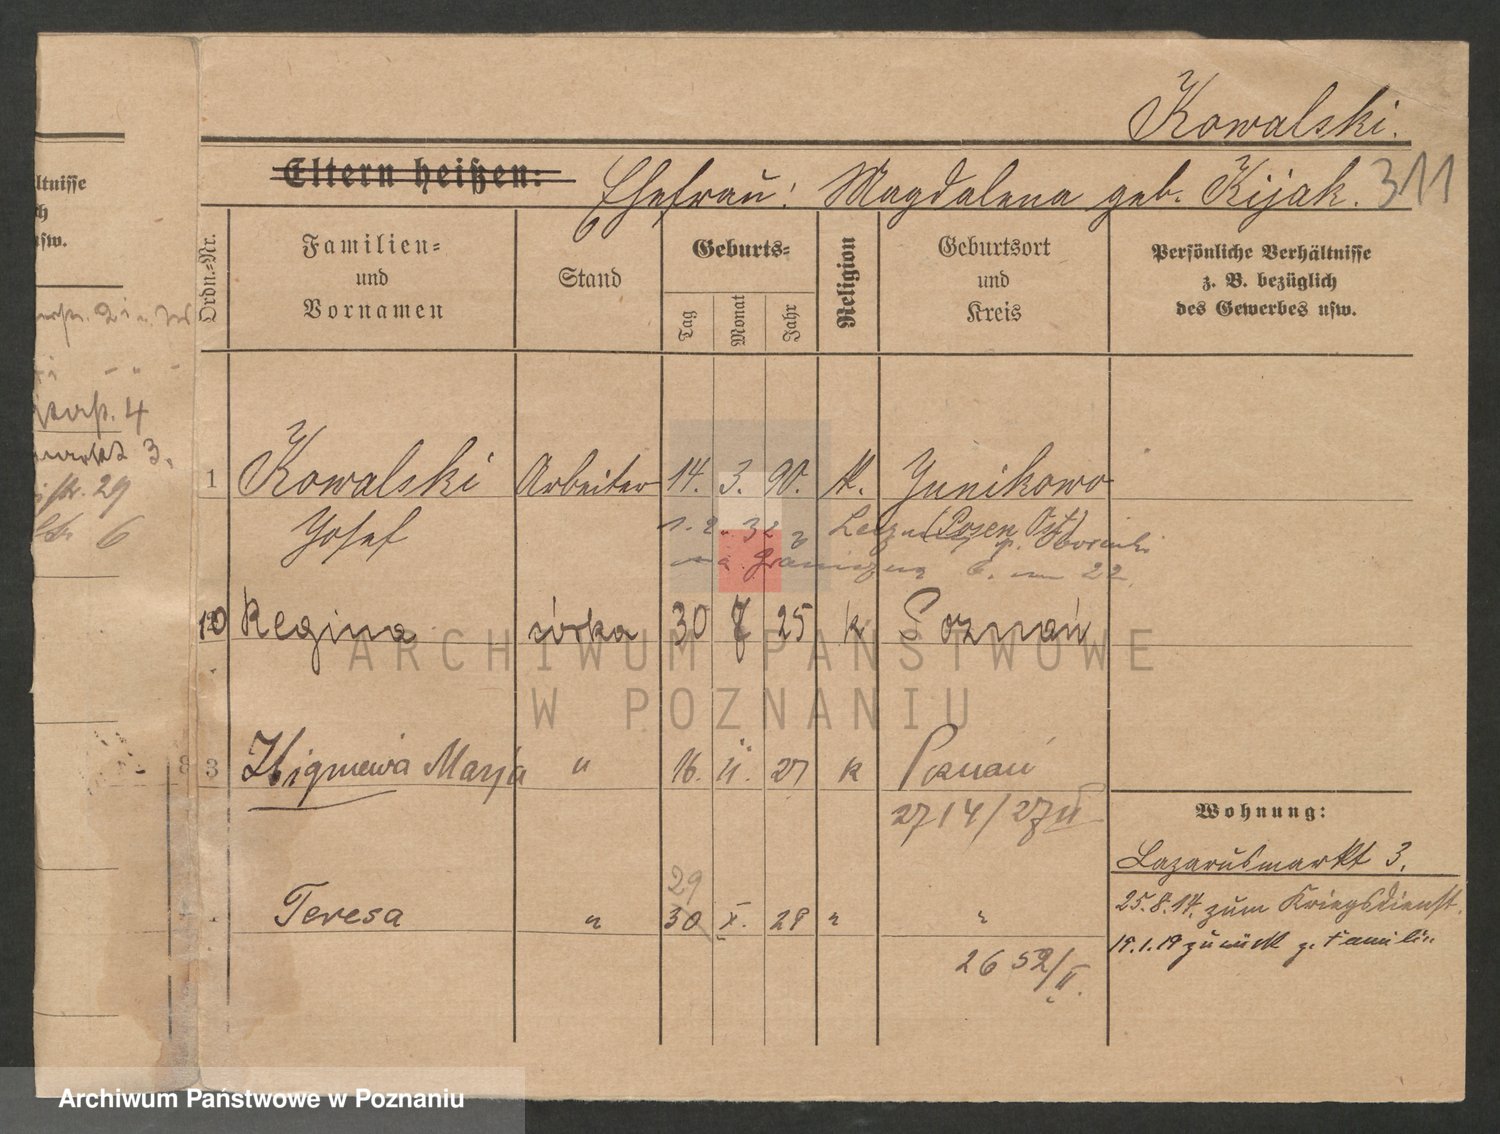 Kowalski.
Eltern heißen: Ehefrau: Magdalena geb. Kijak. 311
ltnisse
ch
usw.
Ordn.-Nr.
Familien- und Vornamen
Stand
Geburts-
Tag
Monat
Jahr
Religion
Geburtsort und Kreis
Persönliche Verhältnisse
z. B. bezüglich
des Gewerbes usw.
1 Kowalski Arbeiter 14. 3. 90. k. Junikowo
Josef (Posen Ost)
1. 2. 32
22
10 Regina córka 30 7 25 k Poznań
ARCHIWUM PAŃSTWOWE
W POZNANIU
3 Zbigniewa Marja " 16. II. 27 k Poznań
2714/27 II
Teresa " 29 30 X. 28 " "
2652/II.
Wohnung:
Lazarusmarkt 3.
25.8.14. zum Kriegsdienst.
15.1.19 zurück z. Familie
str. 4
markt 3.
str. 29
6
Archiwum Państwowe w Poznaniu